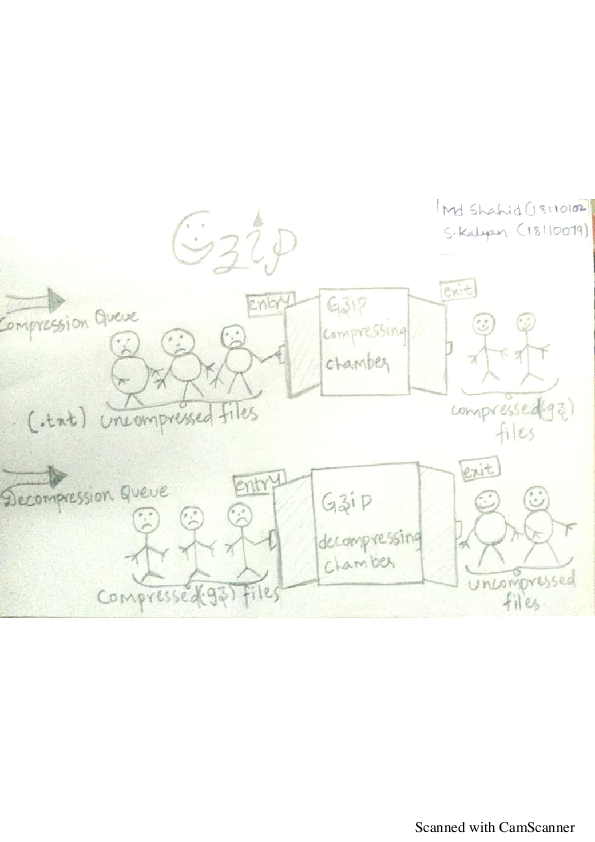 Md Shahid (18110102)
S. Kalyan (18110079)
Gzip
entry
exit
Compression Queue
Gzip
compressing
chamber
(.txt) uncompressed files
compressed(gz)
files
entry
exit
Decompression Queue
Gzip
decompressing
chamber
compressed(gz) files
uncompressed
files
Scanned with CamScanner